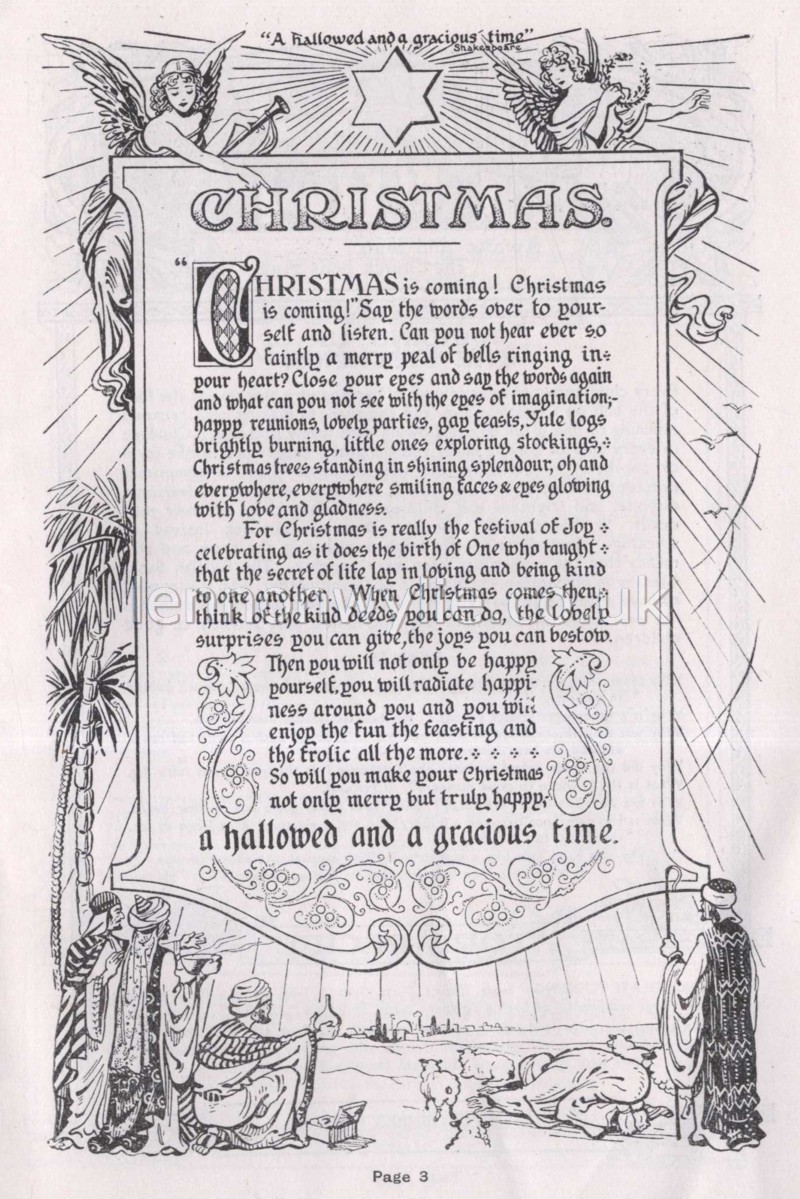 "A hallowed and a gracious time"
Shakespeare
CHRISTMAS.
"CHRISTMAS is coming! Christmas
is coming!" Say the words over to your-
self and listen. Can you not hear ever so
faintly a merry peal of bells ringing in
your heart? Close your eyes and say the words again
and what can you not see with the eyes of imagination;-
happy reunions, lovely parties, gay feasts, Yule logs
brightly burning, little ones exploring stockings,
Christmas trees standing in shining splendour, oh and
everywhere, everywhere smiling faces & eyes glowing
with love and gladness.
For Christmas is really the festival of Joy
celebrating as it does the birth of One who taught
that the secret of life lay in loving and being kind
to one another. When Christmas comes then,
think of the kind deeds you can do, the lovely
surprises you can give, the joys you can bestow.
Then you will not only be happy
yourself, you will radiate happi-
ness around you and you will
enjoy the fun the feasting and
the frolic all the more.
So will you make your Christmas
not only merry but truly happy,
a hallowed and a gracious time.
lennonwylie.co.uk
Page 3